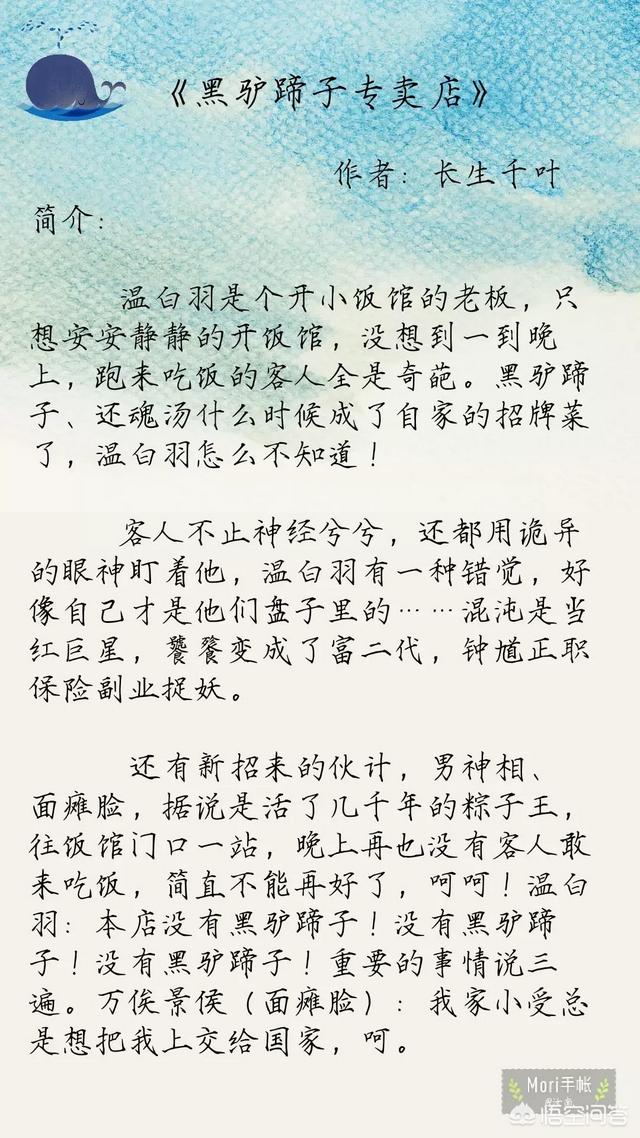 《黑驴蹄子专卖店》
作者：长生千叶
简介：
温白羽是个开小饭馆的老板，只
想安安静静的开饭馆，没想到一到晚
上，跑来吃饭的客人全是奇葩。黑驴蹄
子、还魂汤什么时候成了自家的招牌菜
了，温白羽怎么不知道！
客人不止神经兮兮，还都用诡异
的眼神盯着他，温白羽有一种错觉，好
像自己才是他们盘子里的……混沌是当
红巨星，饕餮变成了富二代，钟馗正职
保险副业捉妖。
还有新招来的伙计，男神相、
面瘫脸，据说是活了几千年的粽子王，
往饭馆门口一站，晚上再也没有客人敢
来吃饭，简直不能再好了，呵呵！温白
羽：本店没有黑驴蹄子！没有黑驴蹄
子！没有黑驴蹄子！重要的事情说三
遍。万俟景侯（面瘫脸）：我家小受总
是想把我上交给国家，呵。
Mori手帐
悟空问答